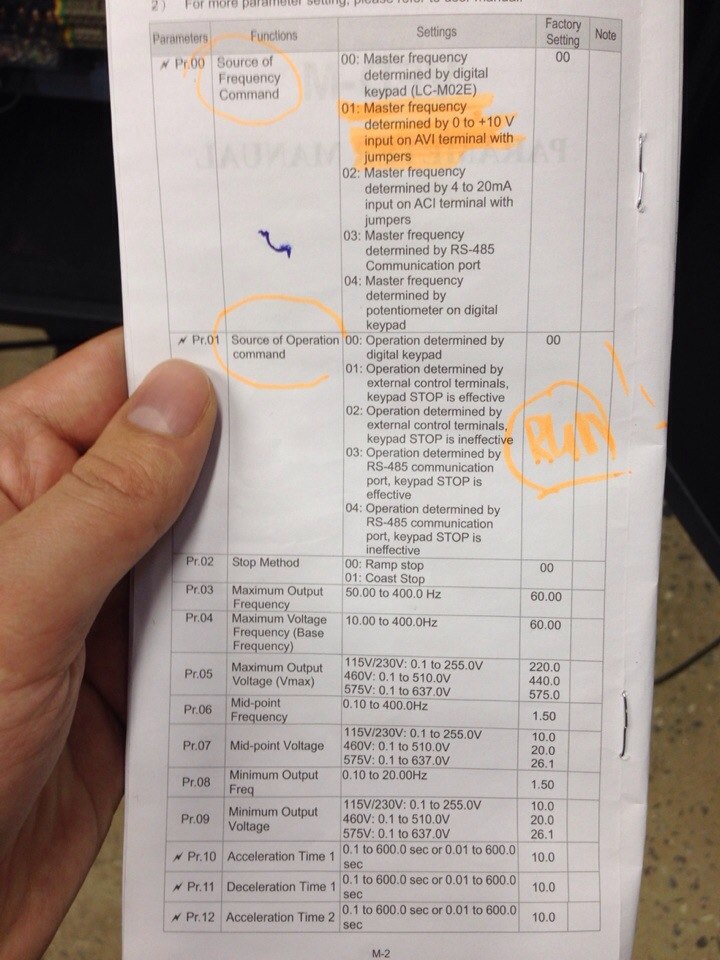 2) For more parameter setting, please refer to user manual.
Parameters Functions Settings Factory Setting Note
Pr.00 Source of Frequency Command 00: Master frequency 00
determined by digital
keypad (LC-M02E)
01: Master frequency
determined by 0 to +10 V
input on AVI terminal with
jumpers
02: Master frequency
determined by 4 to 20mA
input on ACI terminal with
jumpers
03: Master frequency
determined by RS-485
Communication port
04: Master frequency
determined by
potentiometer on digital
keypad
Pr.01 Source of Operation command 00: Operation determined by 00
digital keypad
01: Operation determined by
external control terminals,
keypad STOP is effective
02: Operation determined by
external control terminals,
keypad STOP is ineffective
RUN
03: Operation determined by
RS-485 communication
port, keypad STOP is
effective
04: Operation determined by
RS-485 communication
port, keypad STOP is
ineffective
Pr.02 Stop Method 00: Ramp stop 00
01: Coast Stop
Pr.03 Maximum Output Frequency 50.00 to 400.0 Hz 60.00
Pr.04 Maximum Voltage Frequency (Base Frequency) 10.00 to 400.0Hz 60.00
Pr.05 Maximum Output Voltage (Vmax) 115V/230V: 0.1 to 255.0V 220.0
460V: 0.1 to 510.0V 440.0
575V: 0.1 to 637.0V 575.0
Pr.06 Mid-point Frequency 0.10 to 400.0Hz 1.50
Pr.07 Mid-point Voltage 115V/230V: 0.1 to 255.0V 10.0
460V: 0.1 to 510.0V 20.0
575V: 0.1 to 637.0V 26.1
Pr.08 Minimum Output Freq 0.10 to 20.00Hz 1.50
Pr.09 Minimum Output Voltage 115V/230V: 0.1 to 255.0V 10.0
460V: 0.1 to 510.0V 20.0
575V: 0.1 to 637.0V 26.1
Pr.10 Acceleration Time 1 0.1 to 600.0 sec or 0.01 to 600.0 sec 10.0
Pr.11 Deceleration Time 1 0.1 to 600.0 sec or 0.01 to 600.0 sec 10.0
Pr.12 Acceleration Time 2 0.1 to 600.0 sec or 0.01 to 600.0 sec 10.0
M-2